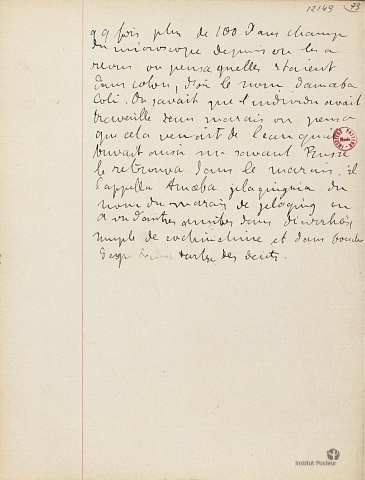 12149
79
qq fois plus de 100 dans champ
du microscope depuis on les a
revus on pensa qu'elles étaient
dans colon, d'où le nom d'amaba
Coli. On savait que l'individu avait
travaillé dans marais on pensa
que cela venait de l'eau qu'il
buvait aussi un savant Russe
le retrouva dans le marais, il
l'appella Amœba
du
nom du marais de
on
a vu d'autres amibes dans diarrhée
simple de cochinchine et dans bouche
tartre des dents.
Institut Pasteur